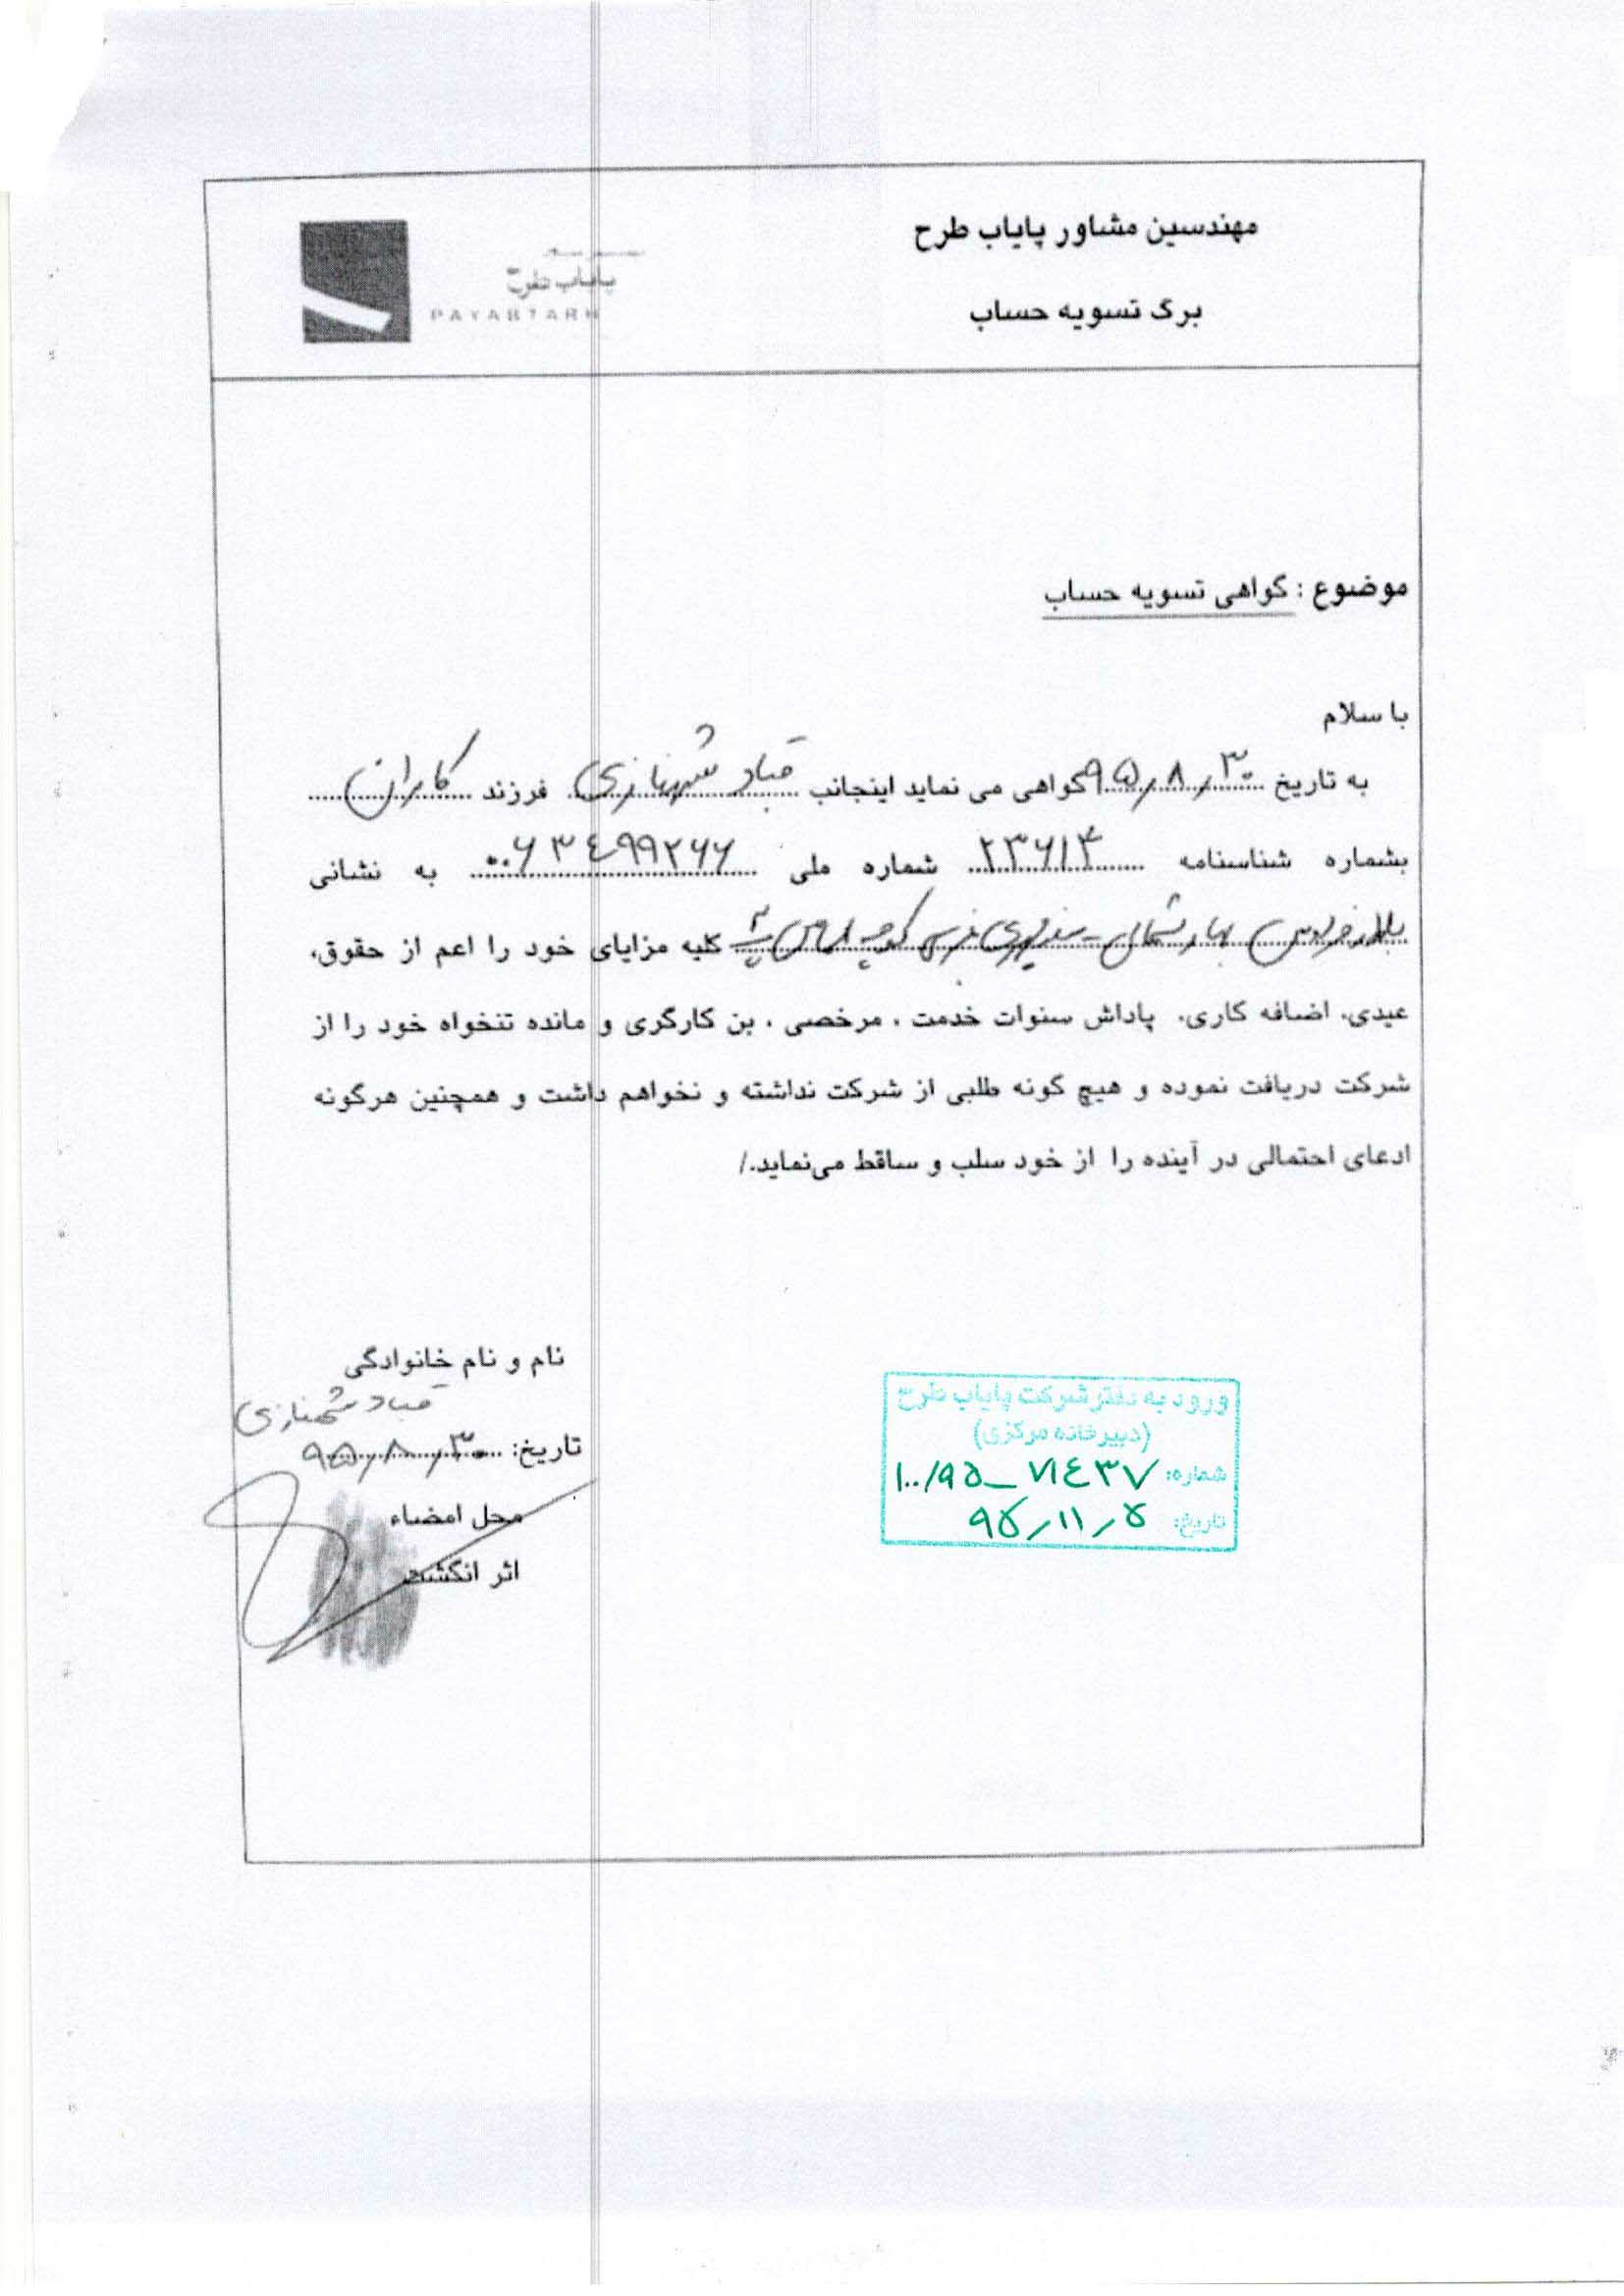 مهندسین مشاور پایاب طرح
برگ تسویه حساب
پایاب طرح
PAYABTARH
موضوع : گواهی تسویه حساب
با سلام
به تاریخ ۹۵/۸/۳۰ گواهی می نماید اینجانب قباد شهبازی فرزند کامران
بشماره شناسنامه ۲۳۶۱۳ شماره ملی ۰۰۶۳۴۹۹۲۶۶ به نشانی
بلوار فردوس بهار شمالی - کوچه کلیه مزایای خود را اعم از حقوق،
عیدی، اضافه کاری، پاداش سنوات خدمت ، مرخصی ، بن کارگری و مانده تنخواه خود را از
شرکت دریافت نموده و هیچ گونه طلبی از شرکت نداشته و نخواهم داشت و همچنین هرگونه
ادعای احتمالی در آینده را از خود سلب و ساقط می‌نماید./
نام و نام خانوادگی
قباد شهبازی
تاریخ: ۹۵/۸/۳۰
محل امضاء
اثر انگشت
ورود به دفتر شرکت پایاب طرح
(دبیرخانه مرکزی)
شماره: ۱۰۰/۹۵-۷۱۴۳۷
تاریخ: ۹۵/۱۱/۵